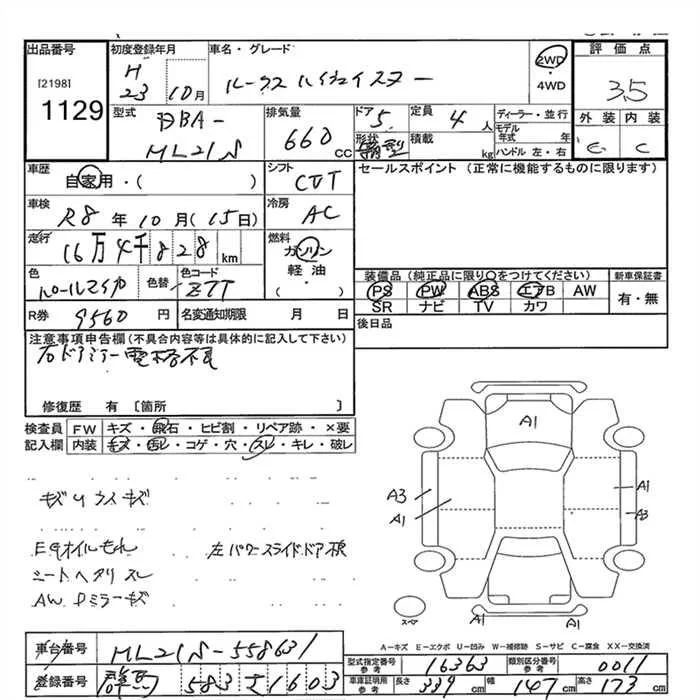 出品番号
[2198]
1129
初度登録年月
H 23 10月
車名・グレード
ルークス ハイウェイスター
2WD
・
4WD
評価点
3.5
型式
DBA-
ML21S
排気量
660 CC
ドア 5
形状 箱型
定員 4 人
積載 kg
ディーラー・並行
モデル年式 年
ハンドル 左・右
外装 内装
C
車歴
自家用・( )
シフト
CVT
セールスポイント (正常に機能するものに限ります)
車検
R8 年 10月 (15日)
冷房
AC
走行
16万4千828 km
燃料
ガソリン
軽油
・
( )
色
パールマイカ
色替
色コード
ZTT
装備品 (純正品に限り○をつけてください)
新車保証書
PS PW ABS エアB AW
有・無
SR ナビ TV カワ
R券 9560 円
名変通知期限 月 日
後日品
注意事項申告欄 (不具合内容等は具体的に記入して下さい)
右ドアミラー電格不良
修復歴 有 [箇所 ]
検査員
記入欄
FW キズ・飛石・ヒビ割・リペア跡・×要
内装 キズ・汚レ・コゲ・穴・スレ・キレ・破レ
キズU
キズ
Egオイルもれ 左パワースライドドア
シートヘタリ スレ
AW Dミラーキズ
A1
A3
A1
A1
A3
スペア
A-キズ E-エクボ U-凹み W-補修跡 S-サビ C-腐食 XX-交換済
車台番号
ML21S-558631
登録番号
群馬 583 21603
型式指定番号
参考
16363
類別区分番号
参考
0011
車庫証明用
参考
長さ 339 cm
幅 147 cm
高さ 173 cm